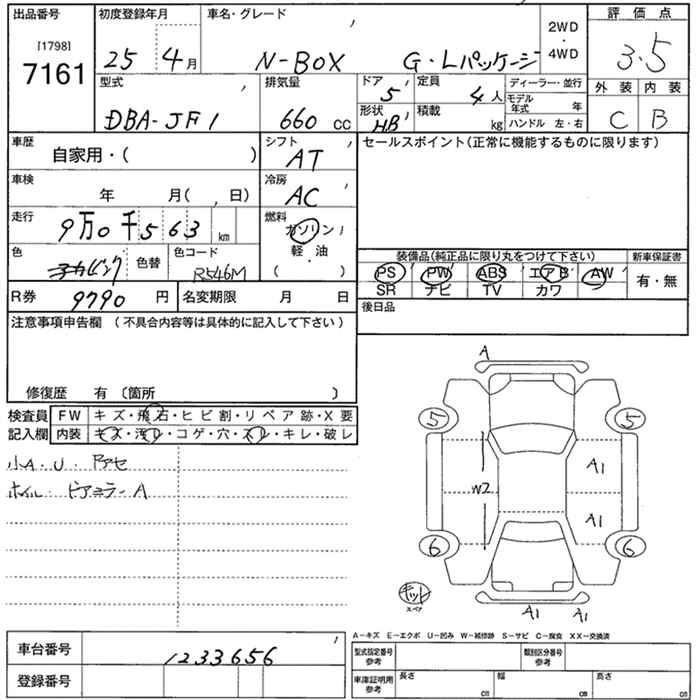 出品番号 初度登録年月 車名・グレード 2WD・4WD 評価点
[1798]
7161 25 4月 N-BOX G・Lパッケージ 3.5
型式 排気量 ドア 5 定員 4人 ディーラー・並行 外装 内装
モデル年式 年
DBA-JF1 660 cc 形状 HB 積載 kg ハンドル 左・右 C B
車歴 自家用・( ) シフト AT セールスポイント(正常に機能するものに限ります)
車検 年 月( 、日) 冷房 AC
走行 9万0千563 km 燃料 ガソリン
軽・油
( )
色 色替 色コード R546M 装備品(純正品に限り丸をつけて下さい) 新車保証書
PS PW ABS エアB AW 有・無
SR ナビ TV カワ
R券 9790円 名変期限 月 日 後日品
注意事項申告欄 (不具合内容等は具体的に記入して下さい)
修復歴 有 〔箇所 〕
検査員 FW キズ・飛石・ヒビ割・リペア跡・X要
記入欄 内装 キズ・汚レ・コゲ・穴・スレ・キレ・破レ
小A・U
A
5 5
A1
W2
A1
6 6
キット
スペア
A1 A1
A-キズ E-エクボ U-凹み W-補修跡 S-サビ C-腐食 XX-交換済
車台番号 1233656 型式指定番号 参考 類別区分番号 参考
登録番号 車庫証明用 参考 長さ cm 幅 cm 高さ cm